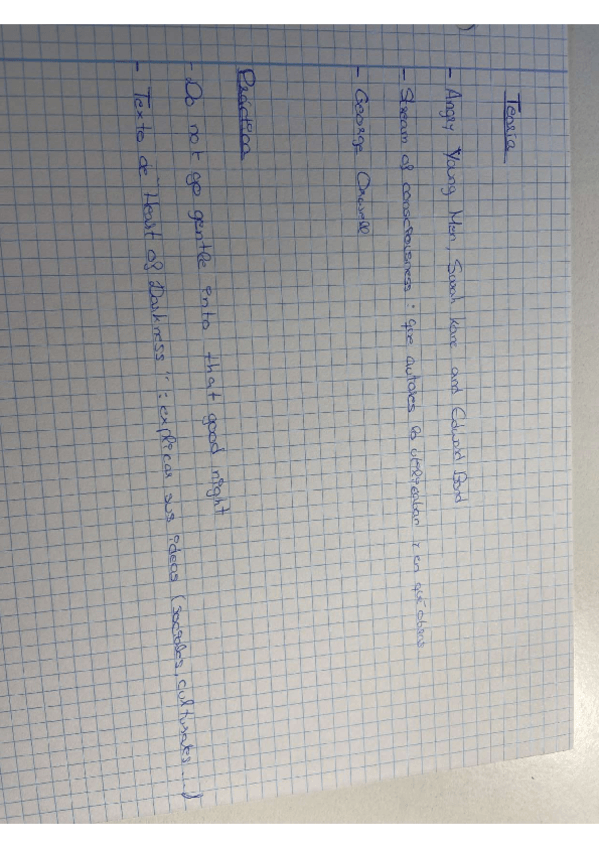 Teoría
- Angry Young Men, Sarah Kane and Edward Bond
- Stream of consciousness : que autores lo utilizaban y en qué obras
- George Orwell
Práctica
- Do not go gentle into that good night
- Texto de "Heart of Darkness" : explicar sus ideas (sociales, culturales ...)